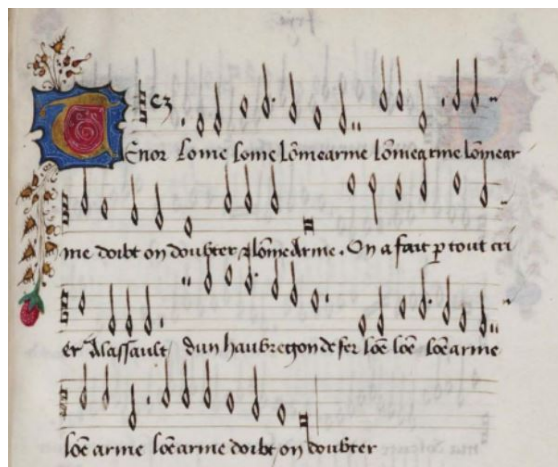 Tenor Lome lome lōmearme lōmearme lōmear
me doibt on doubter, lōmearme. On a fait p tout cri
er Alassault dun haubregon de fer lōē lōē lōēarme
lōē arme lōēarme doibt on doubter